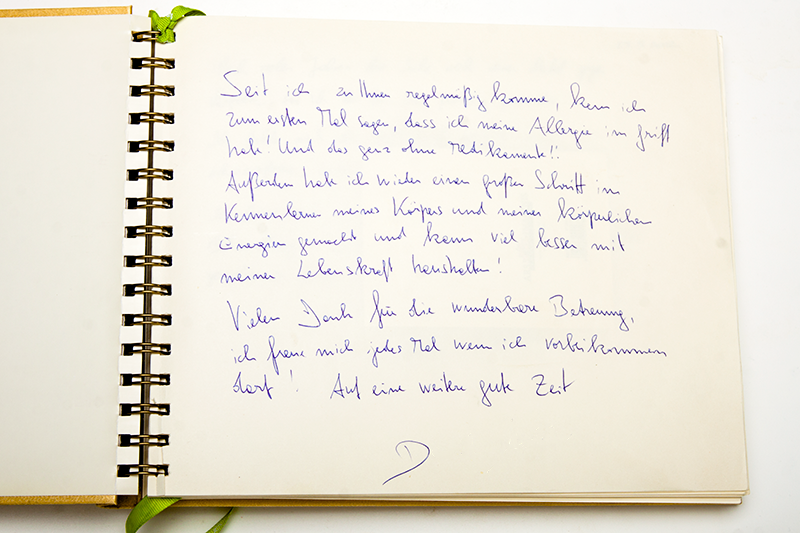 Seit ich zu Ihnen regelmäßig komme, kann ich
zum ersten Mal sagen, dass ich meine Allergie im Griff
hab! Und das ganz ohne Medikamente!!
Außerdem hab ich wieder einen großen Schritt im
Kennenlernen meines Körpers und meiner körperlichen
Energien gemacht und kann viel besser mit
meiner Lebenskraft haushalten!
Vielen Dank für die wunderbare Betreuung,
ich freue mich jedes Mal wenn ich vorbeikommen
darf! Auf eine weitere gute Zeit
D